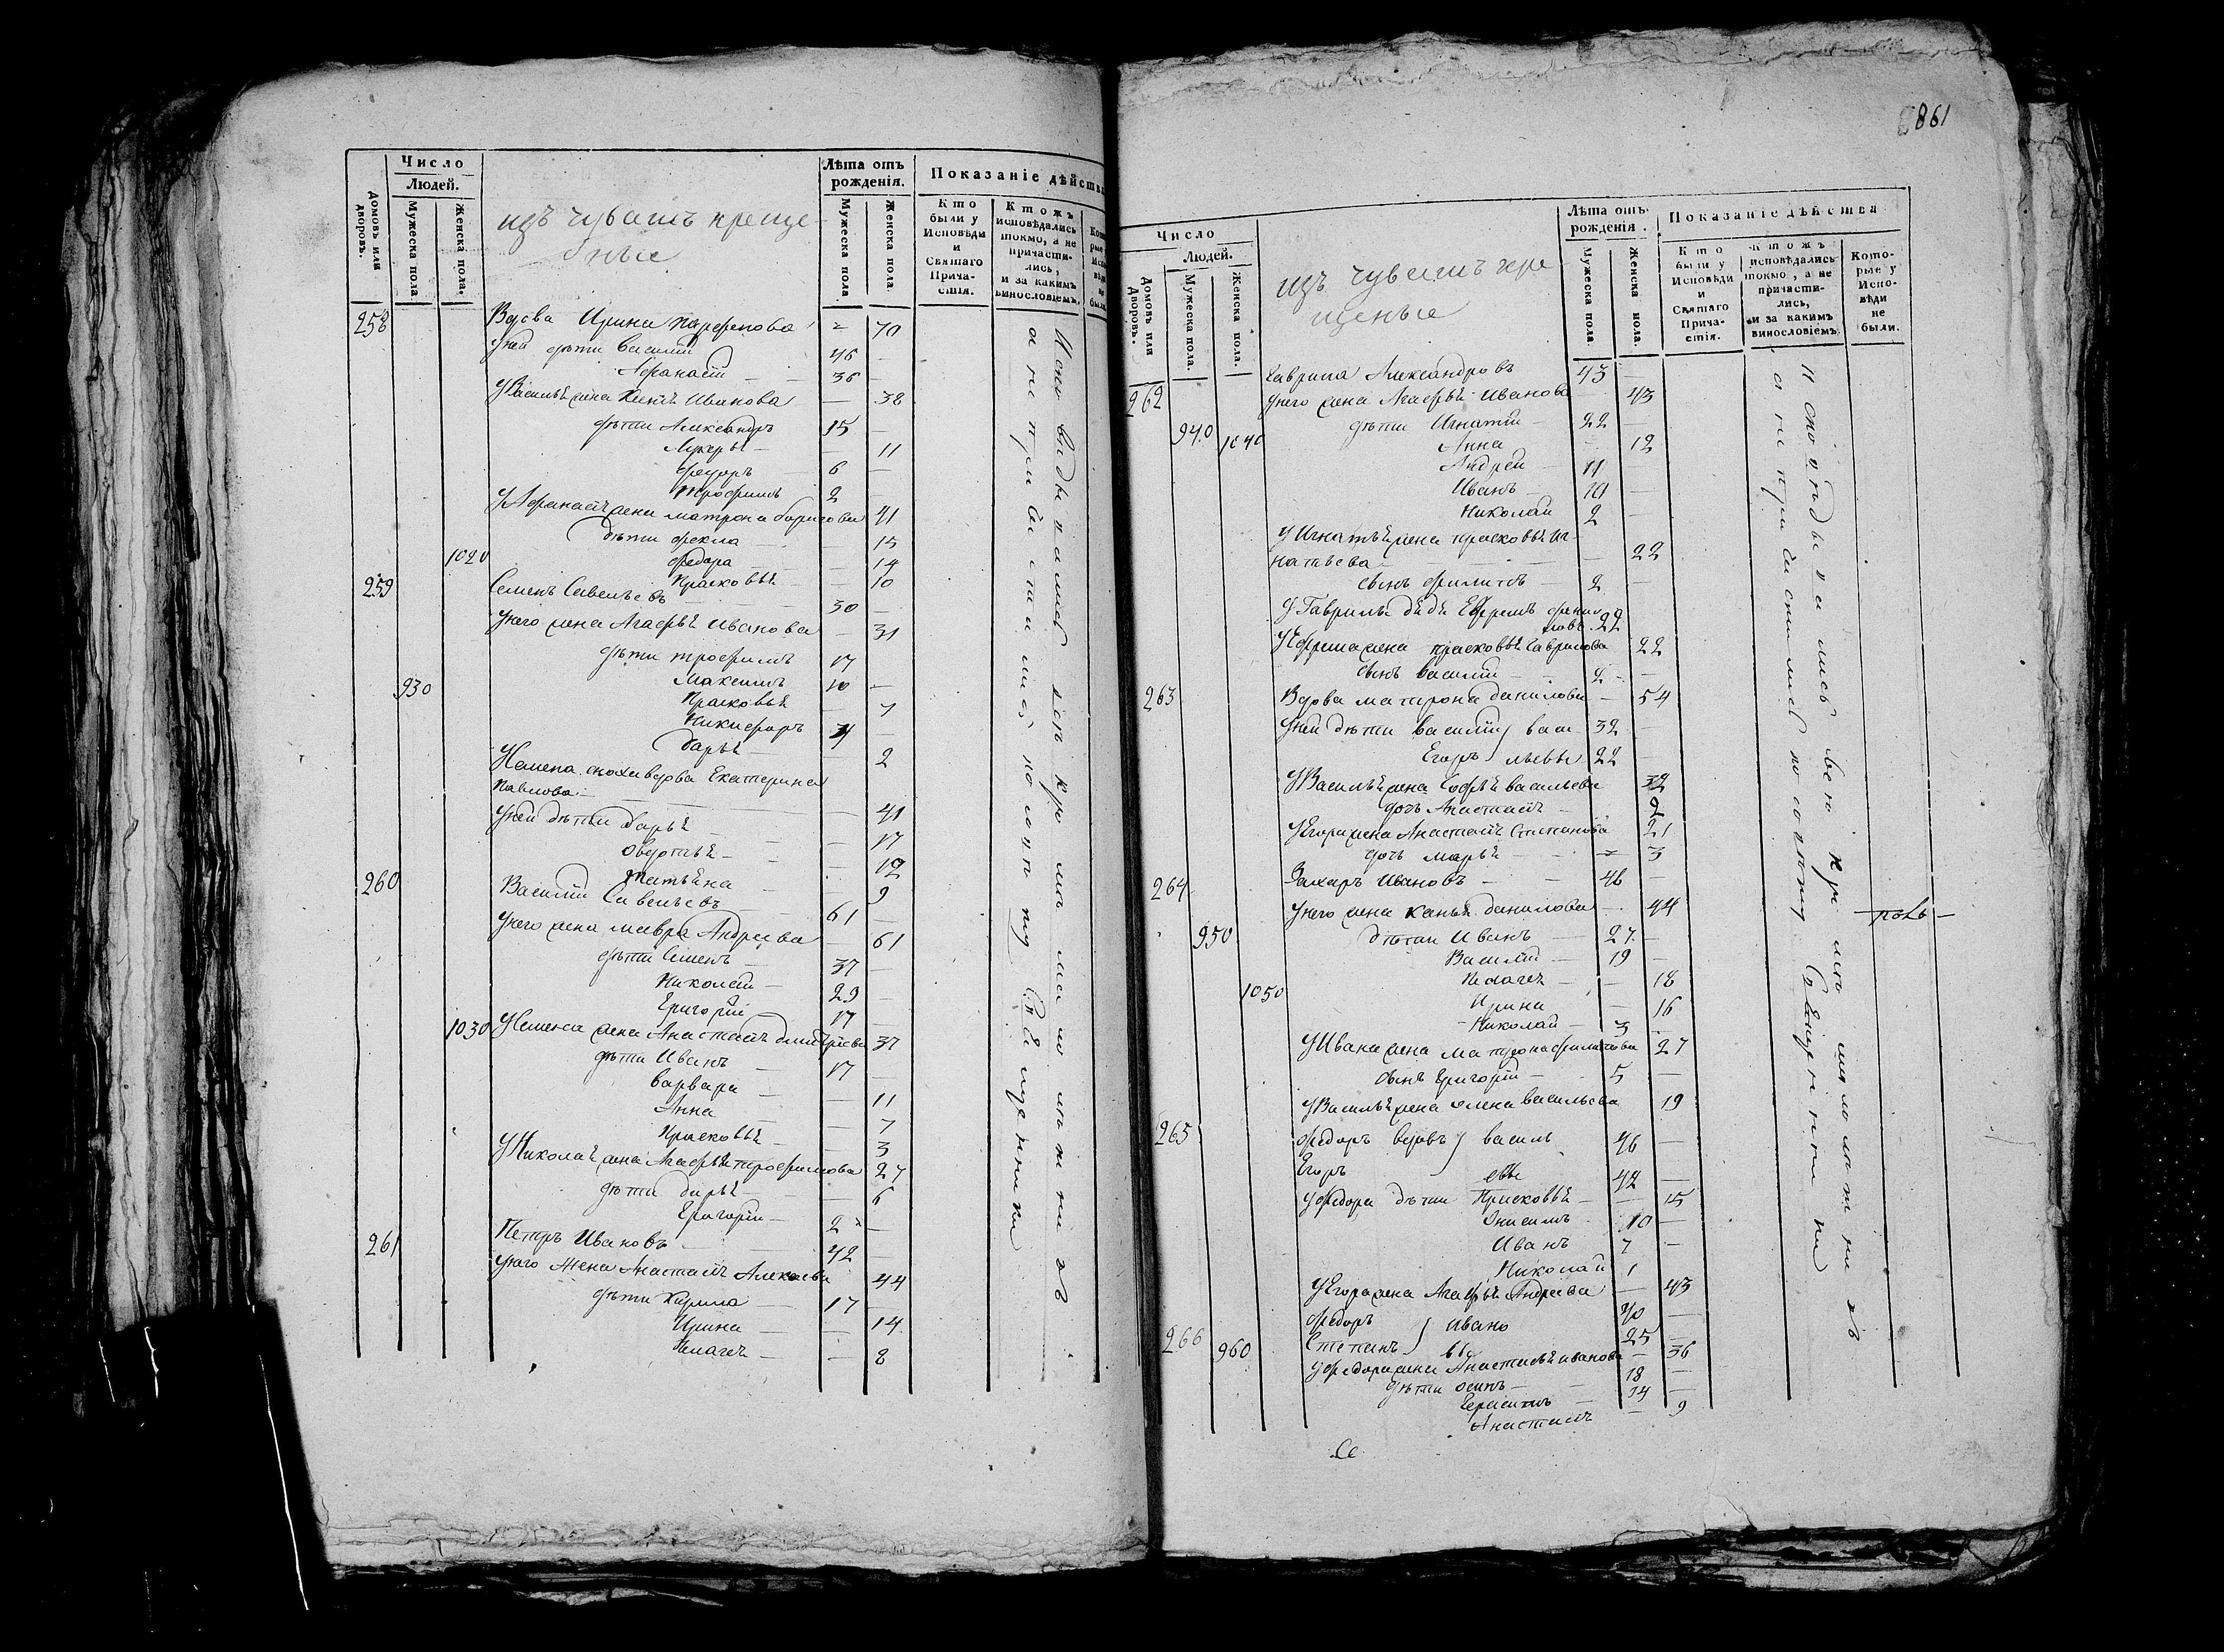 Число
Людей.
Домовъ или дворовъ.
Мужеска пола
Женска пола.
изъ чувашъ креще-
ные
Лѣта отъ рожденія.
Мужеска пола
Женска пола.
Показаніе дѣйства
Кто были у Исповѣди и Святаго Причастія.
Ктожъ исповѣдались токмо, а не причастились, и за какимъ винословіемъ.
258 Вдова Ирина Парфенова 70
У ней дѣти Василій 46
Афанасій 36
У Василья жена Иванова 38
дѣти Александръ 15
11
Федоръ 6
Трофимъ 2
У Афанасія жена Матрона 41
дѣти Фекла 15
1020 Федора 14
Прасковья 10
259 Семенъ Савельевъ 30
У него жена Агафья Иванова 31
дѣти Трофимъ 17
930 Максимъ 10
Прасковья 7
Никифоръ 4
Дарья 2
У Семена сноха вдова Екатерина
Павлова 41
У ней дѣти Дарья 17
Овдотья 12
Татьяна 9
260 Василій Савельевъ 61
У него жена Мавра Андреева 61
дѣти Семенъ 37
Николай 29
Григорій 17
1030 У Семена жена Анастасія Дмитріева 37
дѣти Иванъ 17
Варвара 11
Анна 7
Прасковья 3
У Николая жена Агафья Трофимова 27
дѣти Дарья 6
Григорій 2
261 Петръ Ивановъ 42
У него жена Анастасія Алексева 44
дѣти Кирила 17
Ирина 14
Пелагея 8
861
Число
Людей.
Домовъ или Дворовъ.
Мужеска пола.
Женска пола.
изъ чувашъ кре
щеные
Лѣта отъ рожденія.
Мужеска пола.
Женска пола.
Показаніе дѣйства
Кто были у Исповѣди и Святаго Причастія.
Ктожъ исповѣдались токмо, а не причастились, и за какимъ винословіемъ.
Которые у Исповѣди не были.
262 Гаврила Александровъ 43
У него жена Агафья Иванова 43
940 дѣти Игнатій 22
1040 Анна 12
Андрей 11
Иванъ 10
Николай 2
У Игнатья жена Прасковья Иг-
натьева 22
сынъ Филипъ 2
У Гаврилы дядя Ефремъ 22
У Ефрема жена Прасковья Гаврилова 22
сынъ Василій 2
263 Вдова Матрона Данилова 54
У ней дѣти Василій } Васи 32
Егоръ } льевы 22
У Василья жена Софья Васильева 32
дочь Анастасія 2
У Егора жена Анастасія Степанова 21
дочь Марья 3
264 Захаръ Ивановъ 46
У него жена Данилова 44
950 дѣти Иванъ 27
Василій 19
1050 Пелагея 18
Ирина 16
Николай 3
У Ивана жена Матрона Филипова 27
сынъ Григорій 5
У Василья жена Олена Васильева 19
265 Федоръ вдовъ } Василь 46
Егоръ } евы 42
У Федора дѣти Прасковья 15
Онисимъ 10
Иванъ 7
Николай 1
У Егора жена Агафья Андреева 43
Федоръ } Ивано 40
266 960 Степанъ } вы 25
У Федора жена Анастасья Иванова 36
дѣти Осипъ 18
Герасимъ 14
Анастасія 9